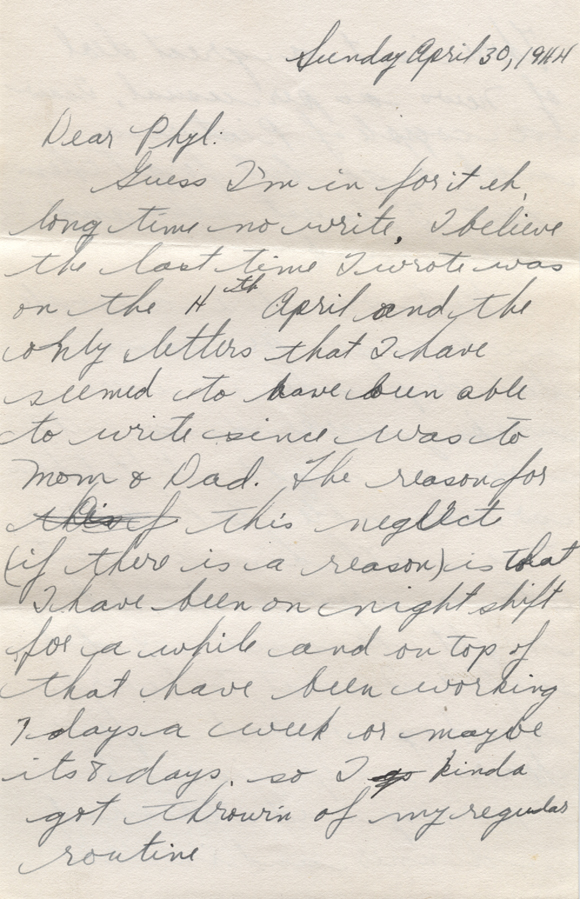 Sunday April 30, 1944
Dear Phyl:
Guess I'm in for it eh,
long time no write. I believe
the last time I wrote was
on the 4th April and the
only letters that I have
seemed to have been able
to write since was to
Mom & Dad. The reason for
this neglect
(if there is a reason) is that
I have been on night shift
for a while and on top of
that have been working
7 days a week or maybe
its 8 days. so I go kinda
got throwin of my regular
routine